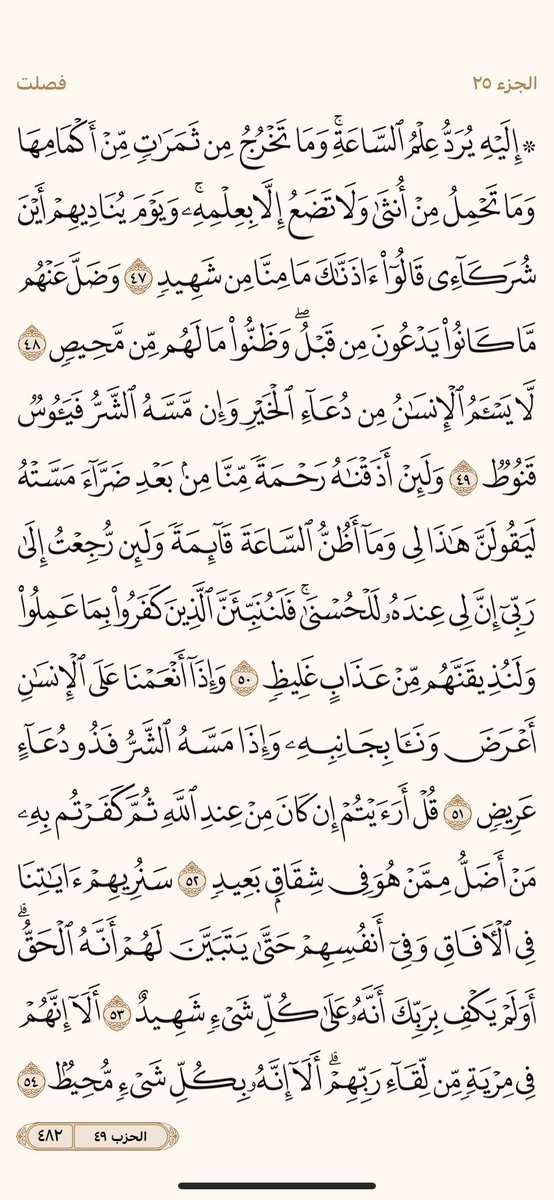 الجزء ٢٥ فصلت
۞ إِلَيْهِ يُرَدُّ عِلْمُ ٱلسَّاعَةِۚ وَمَا تَخْرُجُ مِن ثَمَرَٰتٍ مِّنْ أَكْمَامِهَا
وَمَا تَحْمِلُ مِنْ أُنثَىٰ وَلَا تَضَعُ إِلَّا بِعِلْمِهِۦۚ وَيَوْمَ يُنَادِيهِمْ أَيْنَ
شُرَكَآءِى قَالُوٓا۟ ءَاذَنَّٰكَ مَا مِنَّا مِن شَهِيدٍ ٤٧ وَضَلَّ عَنْهُم
مَّا كَانُوا۟ يَدْعُونَ مِن قَبْلُۖ وَظَنُّوا۟ مَا لَهُم مِّن مَّحِيصٍ ٤٨
لَّا يَسْـَٔمُ ٱلْإِنسَٰنُ مِن دُعَآءِ ٱلْخَيْرِ وَإِن مَّسَّهُ ٱلشَّرُّ فَيَـُٔوسٌ
قَنُوطٌ ٤٩ وَلَئِنْ أَذَقْنَٰهُ رَحْمَةً مِّنَّا مِنۢ بَعْدِ ضَرَّآءَ مَسَّتْهُ
لَيَقُولَنَّ هَٰذَا لِى وَمَآ أَظُنُّ ٱلسَّاعَةَ قَآئِمَةً وَلَئِن رُّجِعْتُ إِلَىٰ
رَبِّىٓ إِنَّ لِى عِندَهُۥ لَلْحُسْنَىٰۚ فَلَنُنَبِّئَنَّ ٱلَّذِينَ كَفَرُوا۟ بِمَا عَمِلُوا۟
وَلَنُذِيقَنَّهُم مِّنْ عَذَابٍ غَلِيظٍ ٥٠ وَإِذَآ أَنْعَمْنَا عَلَى ٱلْإِنسَٰنِ
أَعْرَضَ وَنَـَٔا بِجَانِبِهِۦ وَإِذَا مَسَّهُ ٱلشَّرُّ فَذُو دُعَآءٍ
عَرِيضٍ ٥١ قُلْ أَرَءَيْتُمْ إِن كَانَ مِنْ عِندِ ٱللَّهِ ثُمَّ كَفَرْتُم بِهِۦ
مَنْ أَضَلُّ مِمَّنْ هُوَ فِى شِقَاقٍۭ بَعِيدٍ ٥٢ سَنُرِيهِمْ ءَايَٰتِنَا
فِى ٱلْـَٔافَاقِ وَفِىٓ أَنفُسِهِمْ حَتَّىٰ يَتَبَيَّنَ لَهُمْ أَنَّهُ ٱلْحَقُّۗ
أَوَلَمْ يَكْفِ بِرَبِّكَ أَنَّهُۥ عَلَىٰ كُلِّ شَىْءٍ شَهِيدٌ ٥٣ أَلَآ إِنَّهُمْ
فِى مِرْيَةٍ مِّن لِّقَآءِ رَبِّهِمْۗ أَلَآ إِنَّهُۥ بِكُلِّ شَىْءٍ مُّحِيطٌۢ ٥٤
الحزب ٤٩ ٤٨٢